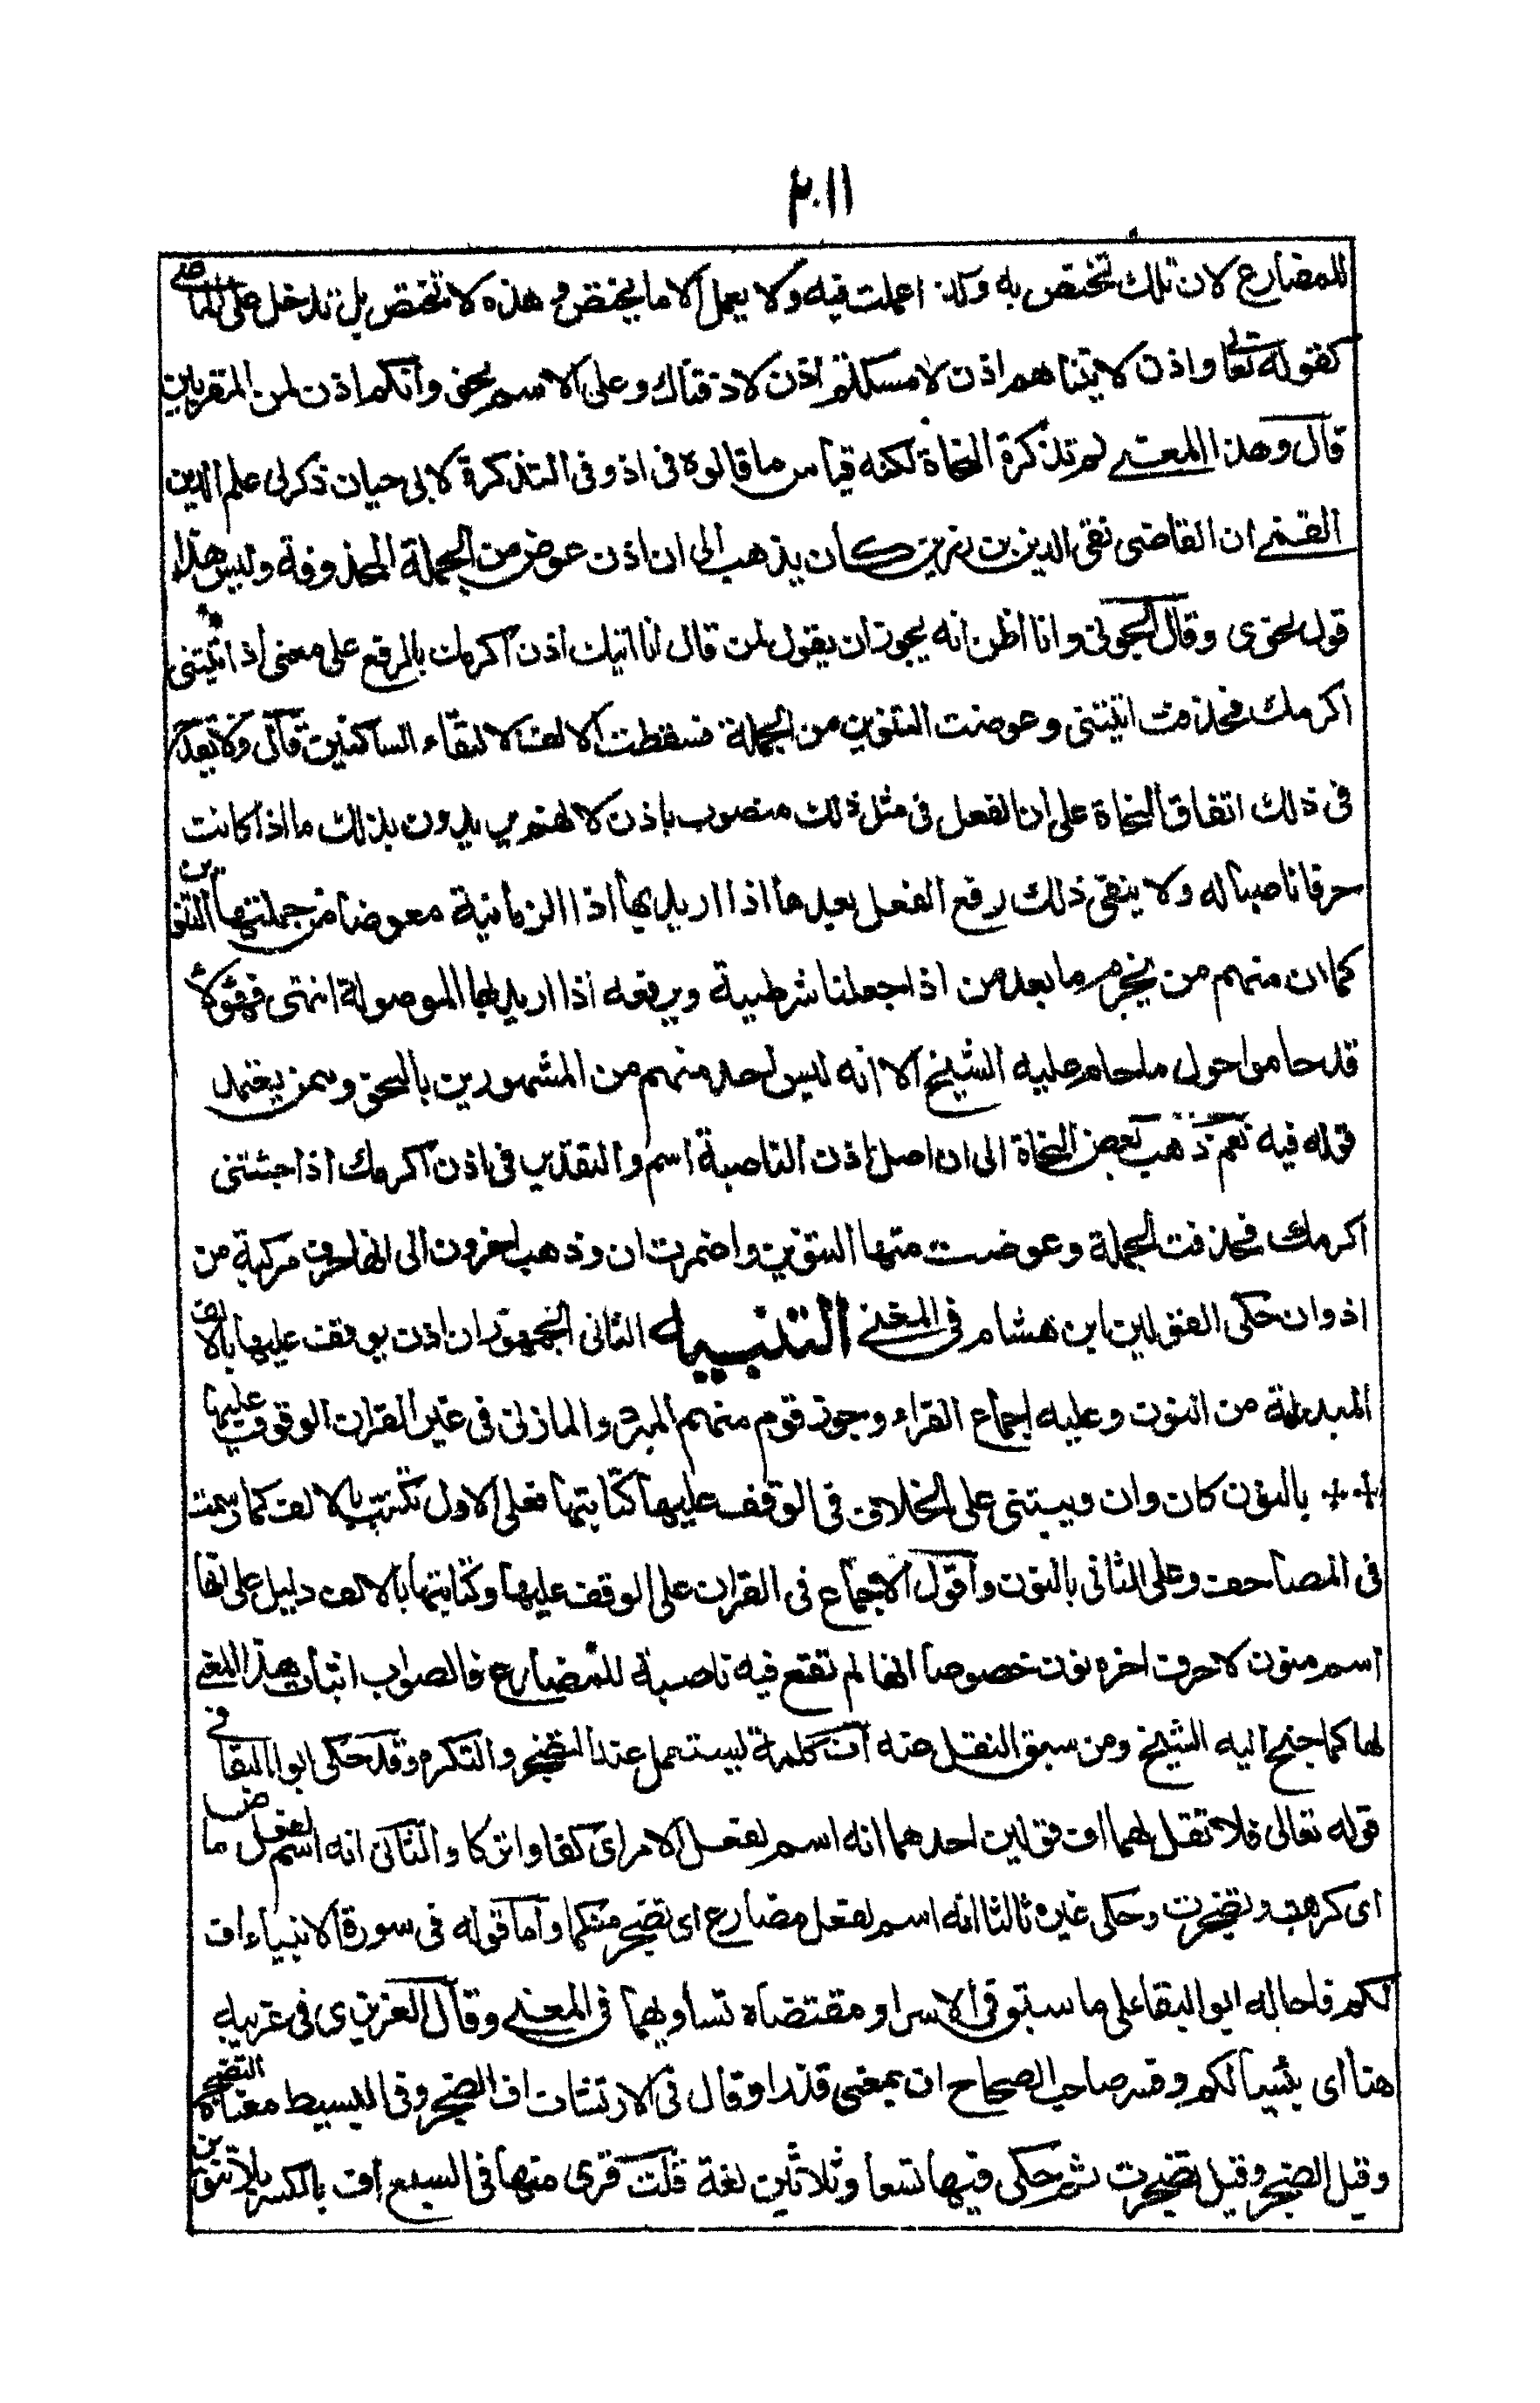 ٢٠١١
للمضارع لان تلك تختص به ولذا اعملت فيه ولا يعمل الا ما يختص و هذه لا تختص بل تدخل على الماضى
كقوله تعالى واذن لاتيناهم اذن لامسكتم اذن لاذقناك وعلى الاسم نحو وانكم اذن لمن المقربين
قال وهذا المعنے لم تذكرة النحاة لكنه قياس ما قالوه فى اذ وفى التذكرة لابى حيان ذكر لى علم الدين
القمنے ان القاضى تقى الدين بن رزين كان يذهب الى ان اذن عوض من الجملة المحذوفة وليس هذا
قول نحوى وقال الجوينى وانا اظن انه يجوز ان يقول لمن قال انا اتيك اذن اكرمك بالرفع على معنى اذا اتيتنى
اكرمك فحذفت اتيتنى وعوضت التنوين من الجملة فسقطت الالف لالتقاء الساكنين قال ولا يقدح
فى ذلك اتفاق النحاة على ان الفعل فى مثل ذلك منصوب باذن لانهم يريدون بذلك ما اذا كانت
حرفا ناصبا له ولا ينفى ذلك رفع الفعل بعدها اذا اريد بها اذا الزمانية معوضا من جملتها التنوين
كما ان منهم من يجزم ما بعد من اذا جعلنا شرطية ويرفعه اذا اريد بها الموصولة انتهى فهؤلاء
قد حاموا حول ما حام عليه الشيخ الا انه ليس احد منهم من المشهورين بالنحو وممن يعتمد
قوله فيه نعم ذهب بعض النحاة الى ان اصل اذن الناصبة اسم والتقدير فى اذن اكرمك اذا جئتنى
اكرمك فحذفت الجملة وعوضت منها التنوين واضمرت ان وذهب اخرون الى انها حرف مركبة من
اذ وان حكى القولين ابن هشام فى المغنے التنبيه الثانى الجمهور ان اذن يوقف عليها بالالف
المبدلة من النون وعليه اجماع القراء وجوز قوم منهم المبرد والمازنى فى غير القران الوقوف عليها
بالنون كان وان ويبتنى على الخلاف فى الوقف عليها كتابتها فعلى الاول تكتب بالالف كما رسمت
فى المصاحف وعلى الثانى بالنون واقول الاجماع فى القران على الوقف عليها وكتابتها بالالف دليل على انها
اسم منون لا حرف اخره نون خصوصا انها لم تقع فيه ناصبة للمضارع فالصواب اثبات هذا المعنے
لها كما جنح اليه الشيخ ومن سبق النقل عنه اف كلمة يستعمل عند التضجر والتكره وقد حكى ابو البقا فى
قوله تعالى فلا تقل لهما اف قولين احدهما انه اسم لفعل الامر اى كفا واتركا والثانى انه اسم لفعل ماض
اى كرهت وتضجرت وحكى غيره ثالثا انه اسم لفعل مضارع اى تضجر منكما واما قوله فى سورة الانبياء اف
لكم فاحاله ابو البقا على ما سبق فى الاسرا ومقتضاه تساويهما فى المعنے وقال العزيزى فى غريبه
هنا اى بئسا لكم وفسر صاحب الصحاح ان بمعنى قذرا وقال فى الارتشاف اف التضجر وفى البسيط معناه التضجر
وقيل الضجر وقيل تضجرت ثم حكى فيها تسعا وثلاثين لغة قلت قرى منها فى السبع اف بالكسر بلا تنوين